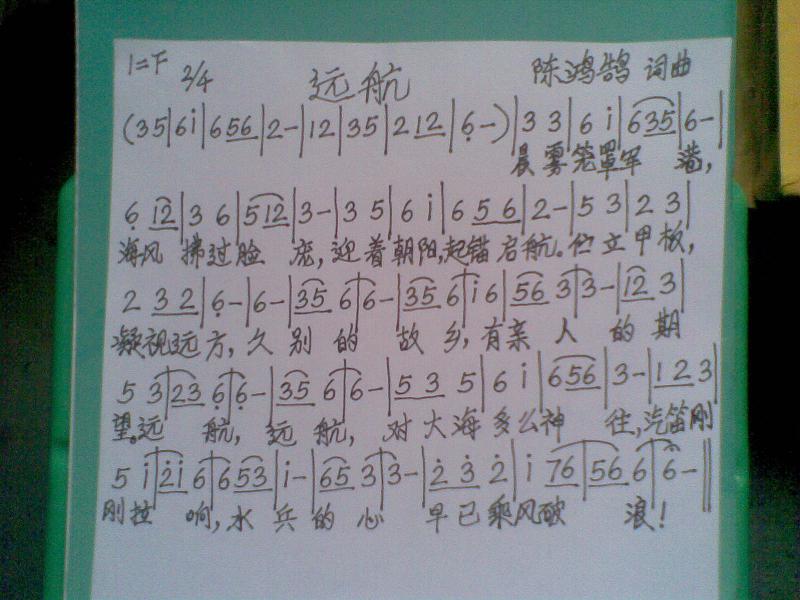 1=F 2/4 远航 陈鸿鹄 词曲
(35|6i|656|2-|12|35|212|6-)|33|6i|635|6-|
晨雾笼罩军港,
612|36|512|3-|35|6i|656|2-|53|23|
海风拂过脸庞,迎着朝阳,起锚启航。伫立甲板,
232|6-|6-|356|6-|356|i6|563|3-|123|
凝视远方,久别的故乡,有亲人的期
53|236|6-|356|6-|535|6i|656|3-|123|
望。远航,远航,对大海多么神往,汽笛刚
5i|2i6|653|i-|653|3-|232|i76|566|6-‖
刚拉响,水兵的心早已乘风破浪!